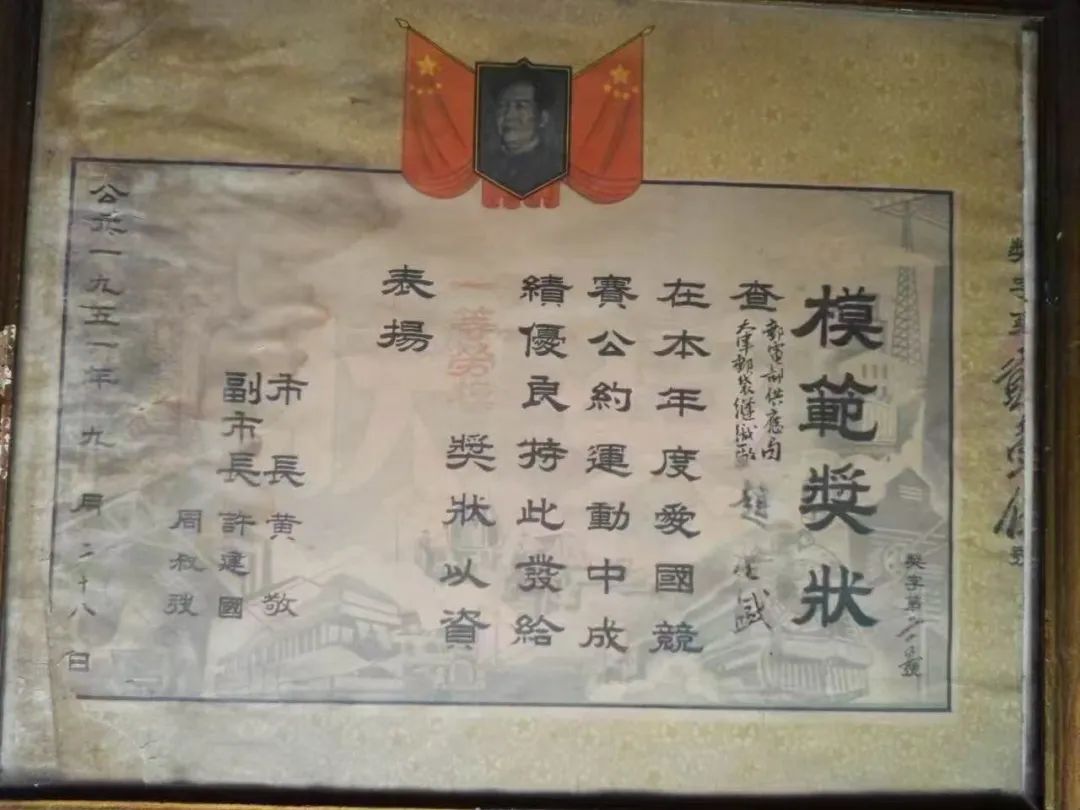 模範獎狀
獎字第
查
郵電部供應局
天津郵袋縫紉廠
趙
在本年度愛國競
賽公約運動中成
績優良持此發給
一等勞模
獎狀以資
表揚
市長黄敬
副市長許建國
周叔弢
公歷一九五一年九月二十八日